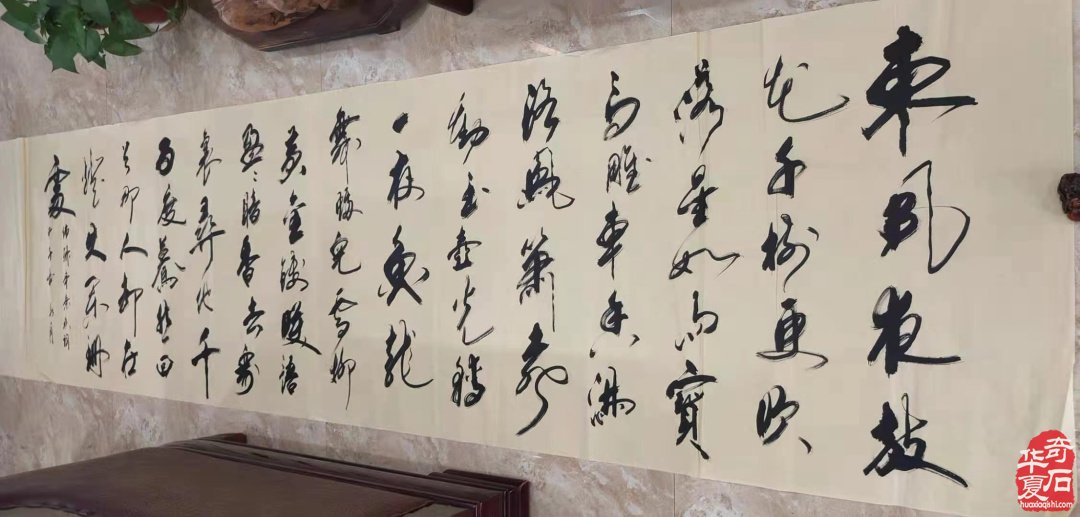 東風夜放
花千樹更吹
落星如雨寶
馬雕車香滿
路鳳簫聲
動玉壺光轉
一夜魚龍
舞蛾兒雪柳
黃金縷笑語
盈〻暗香去衆
裏尋他千
百度驀然回
首那人卻在
燈火闌珊
處
华夏奇石
huaxiaqishi.com